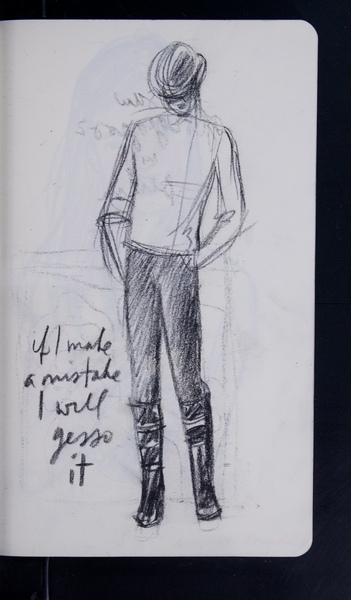 if I make
a mistake
I will
gesso
it